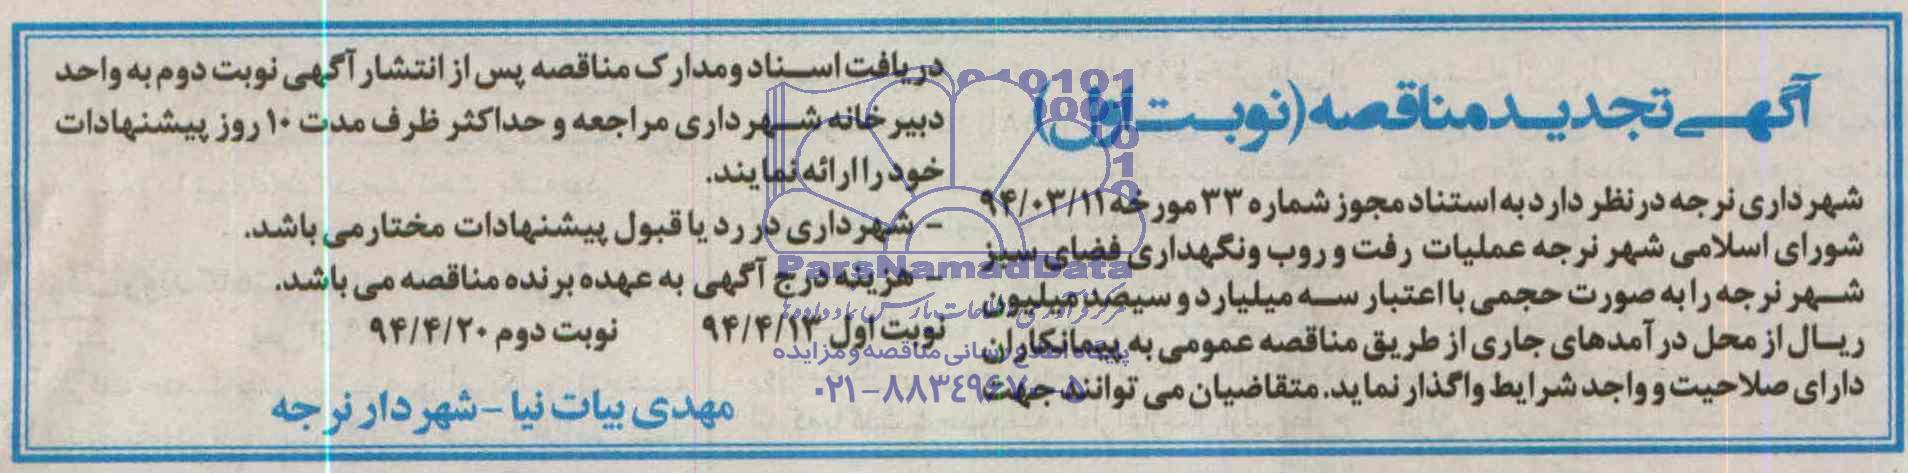 آگهی تجدید مناقصه (نوبت اول)
شهرداری نرجه در نظر دارد به استناد مجوز شماره ۳۳ مورخه ۹۴/۰۳/۱۱
شورای اسلامی شهر نرجه عملیات رفت و روب ونگهداری فضای سبز
شهر نرجه را به صورت حجمی با اعتبار سه میلیارد و سیصد میلیون
ریال از محل درآمدهای جاری از طریق مناقصه عمومی به پیمانکاران
دارای صلاحیت و واجد شرایط واگذار نماید. متقاضیان می توانند جهت
دریافت اسناد و مدارک مناقصه پس از انتشار آگهی نوبت دوم به واحد
دبیرخانه شهرداری مراجعه و حداکثر ظرف مدت ۱۰ روز پیشنهادات
خود را ارائه نمایند.
- شهرداری در رد یا قبول پیشنهادات مختار می باشد.
- هزینه درج آگهی به عهده برنده مناقصه می باشد.
نوبت اول ۹۴/۴/۱۳ نوبت دوم ۹۴/۴/۲۰
مهدی بیات نیا - شهردار نرجه
ParsNamadData
پایگاه اطلاع رسانی مناقصه و مزایده
۰۲۱-۸۸۳۴۹۶۷۰-۵